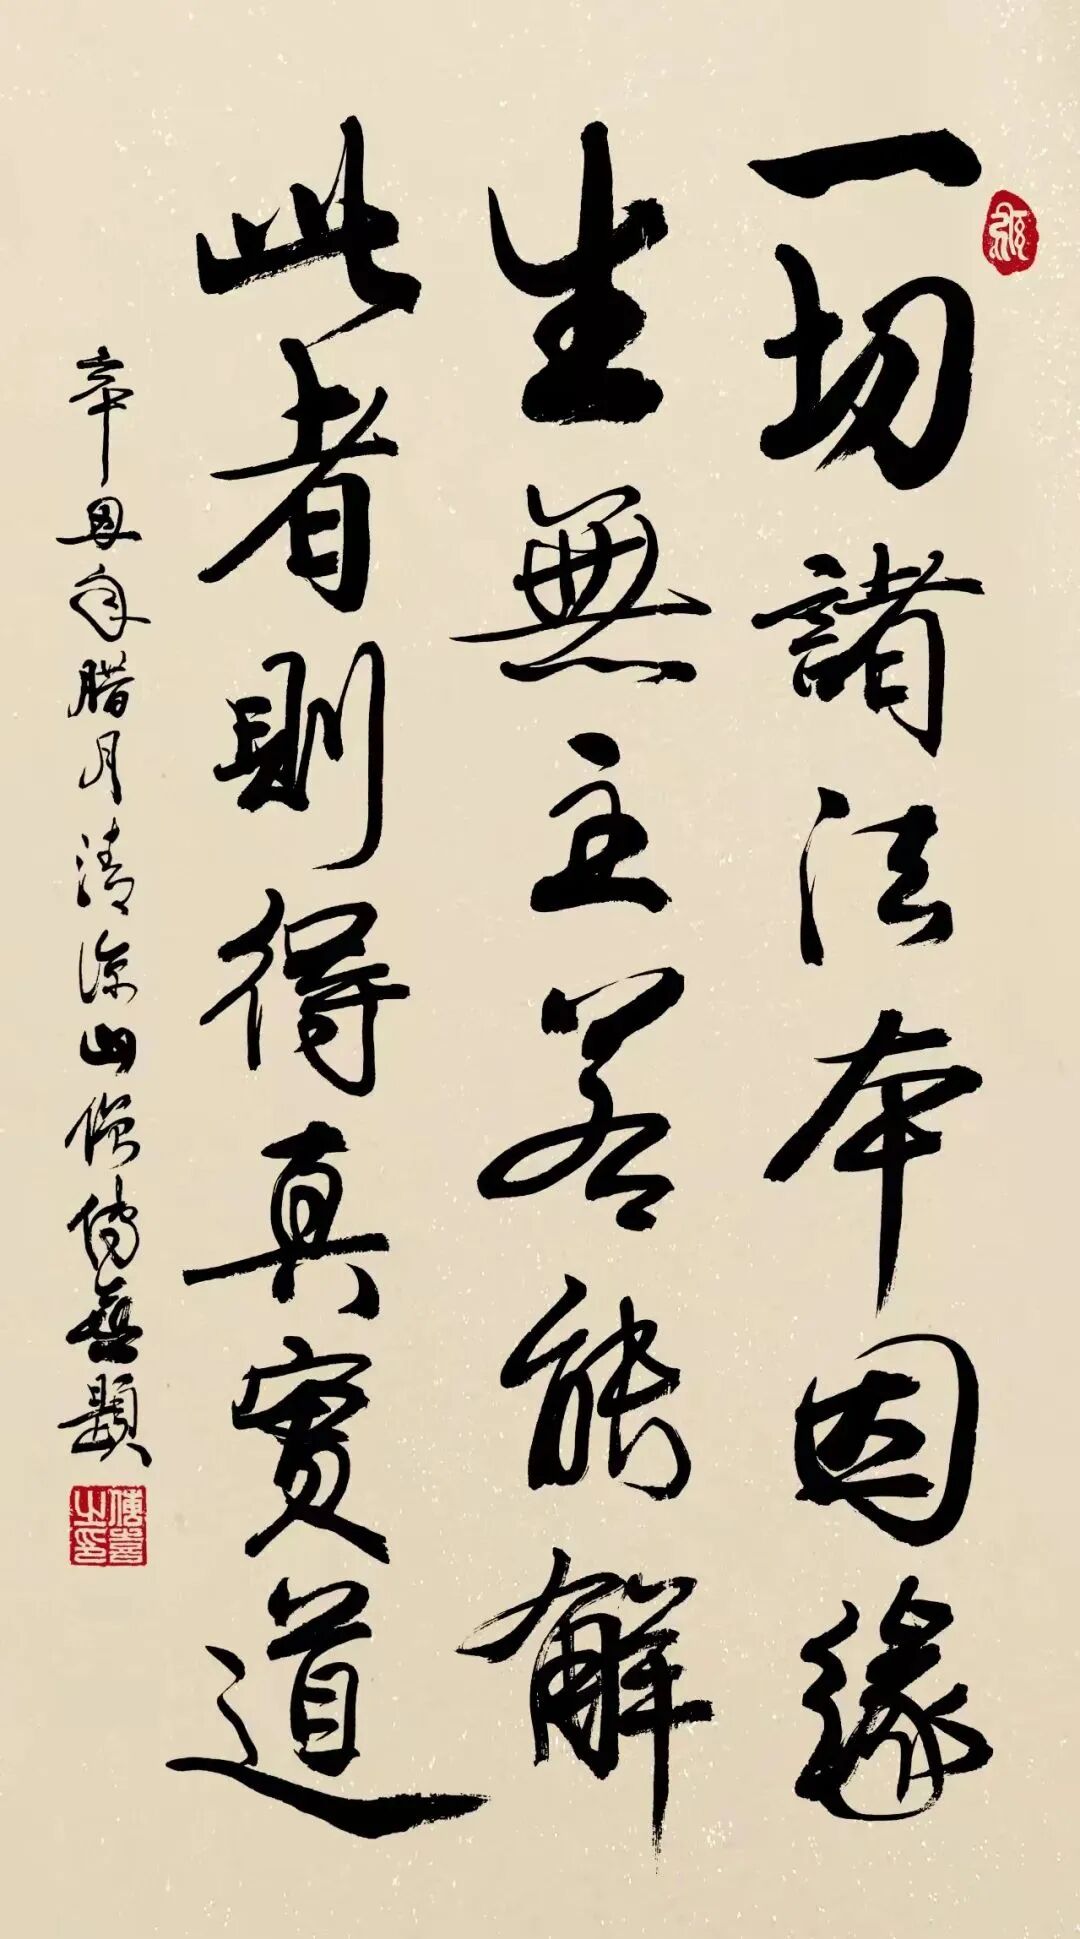 一切諸法本因緣
生無主若能解
此者則得真實道
辛丑年腊月清凉山僧传喜題
傳喜之印